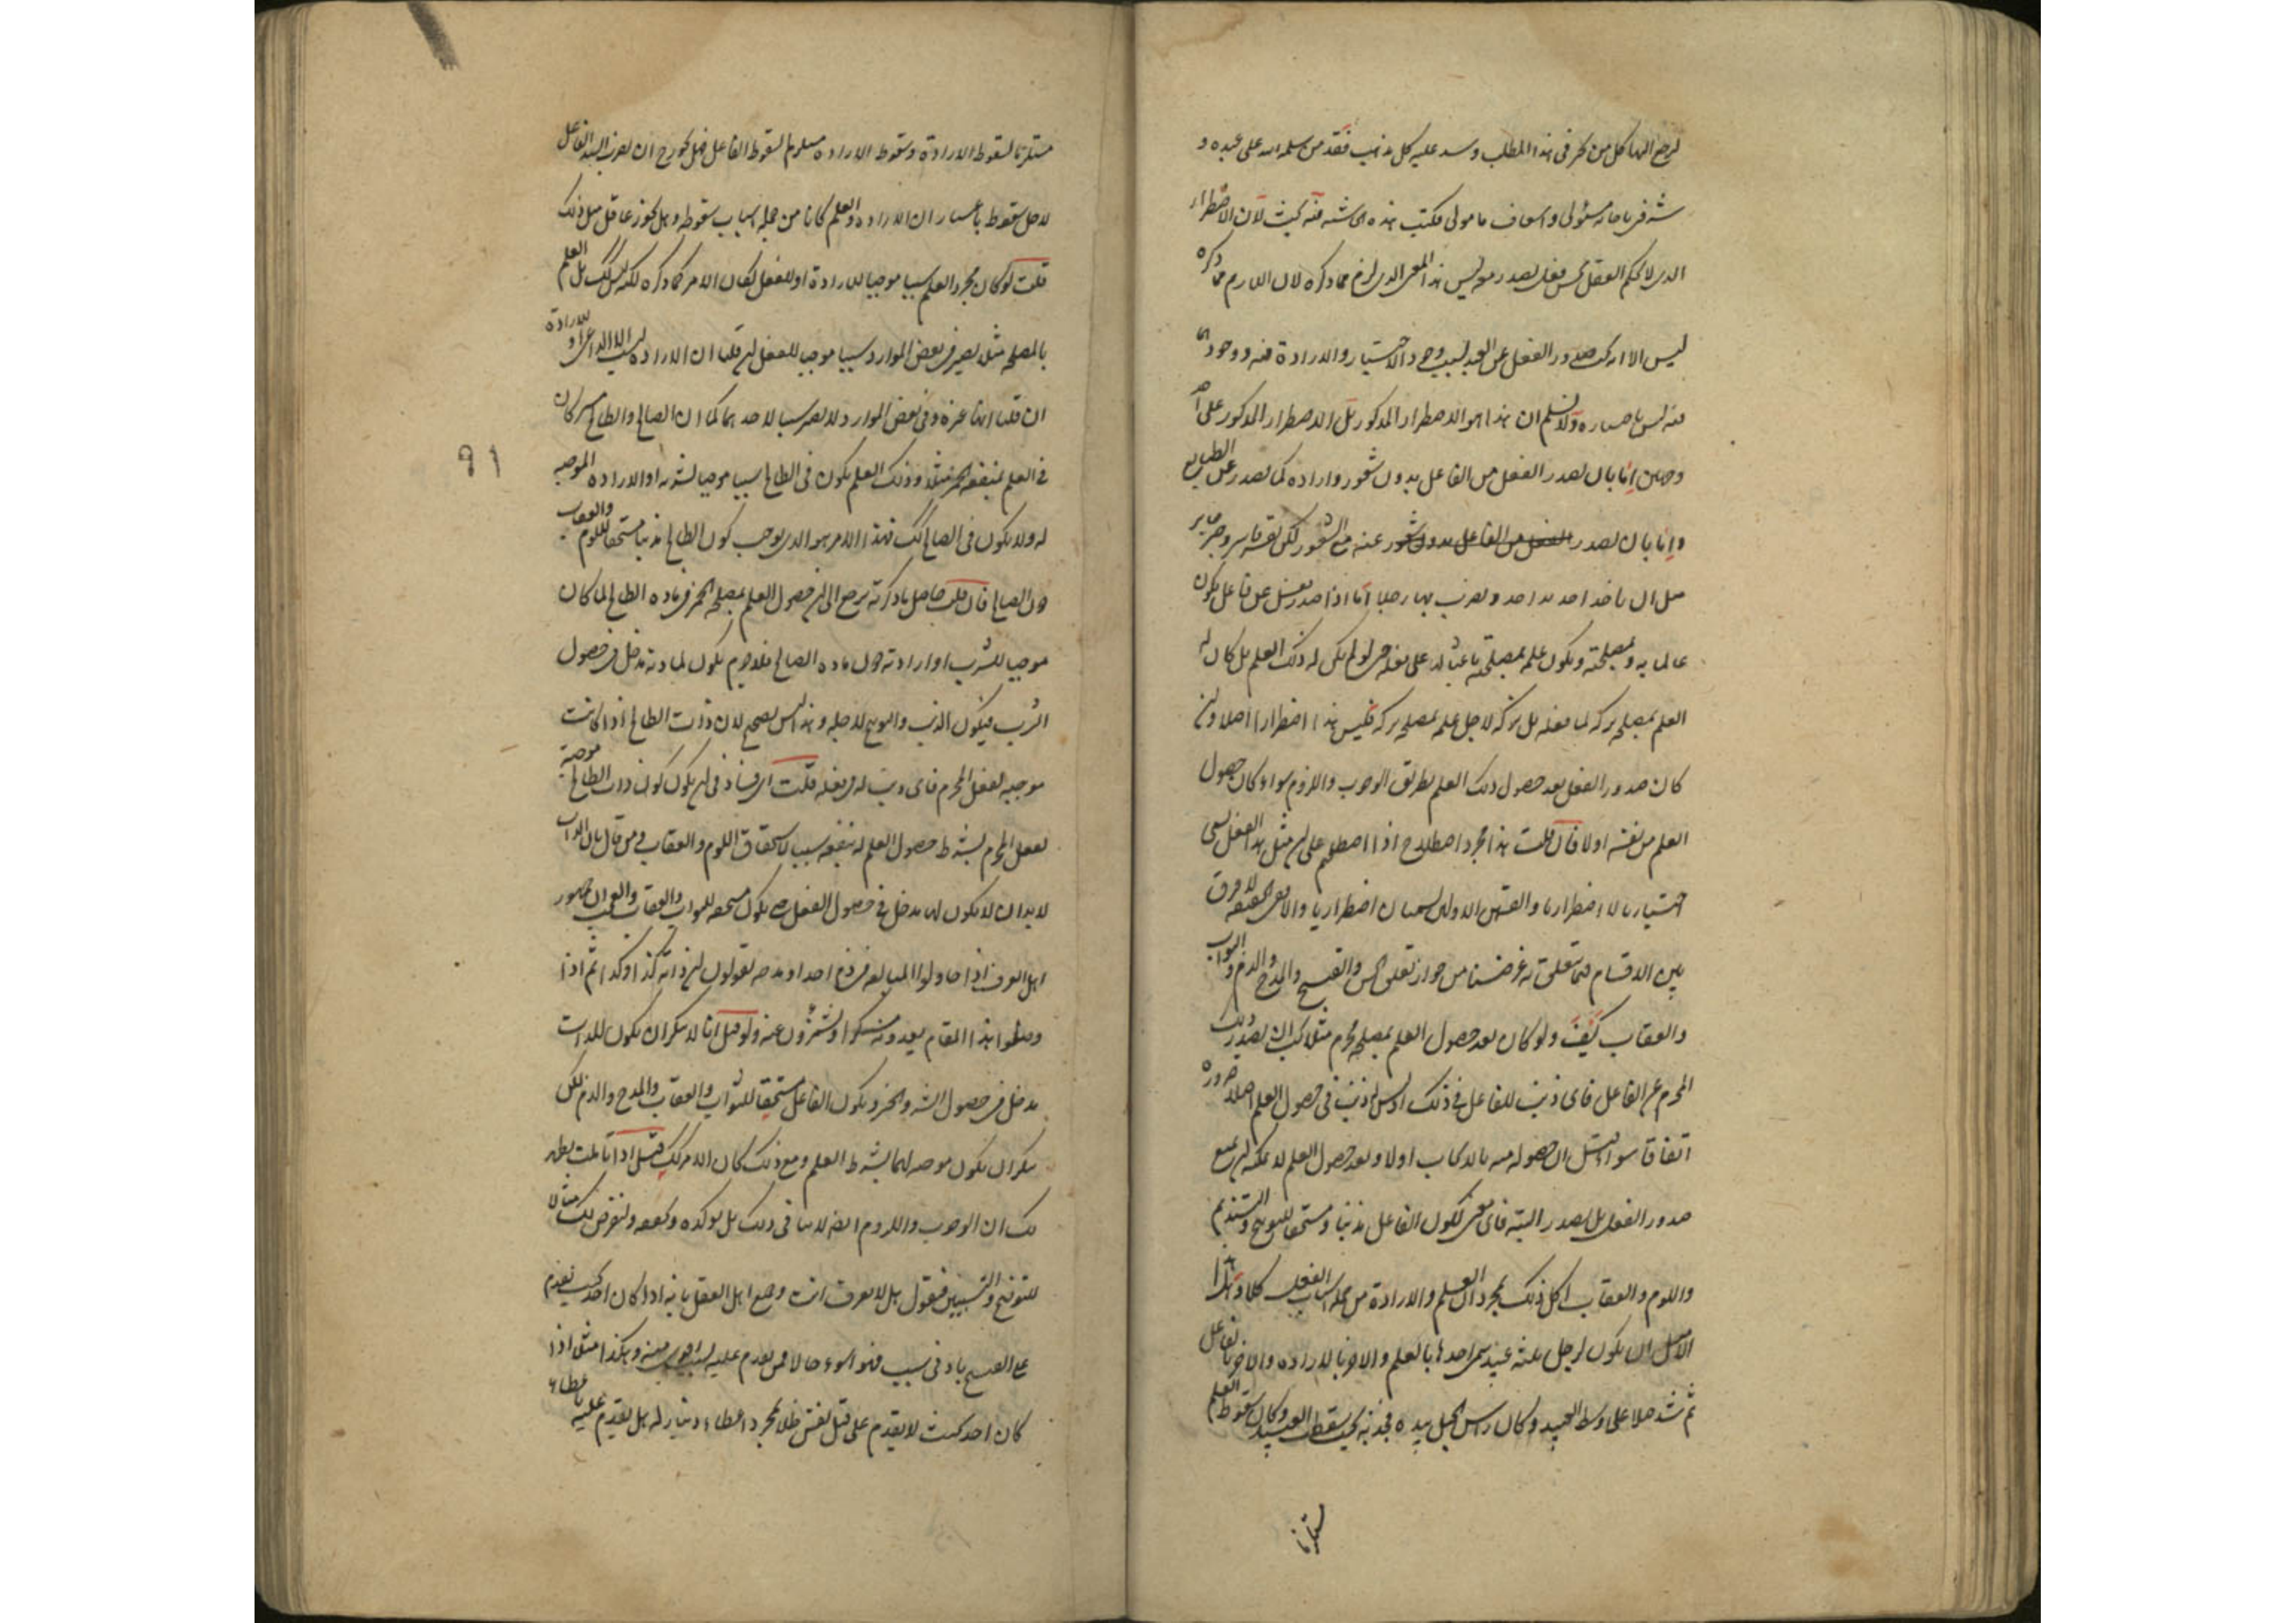 كل من في هذا المطلب وسد عليه كل مذهب فقد من سلمه الله على عبده و
مسئولي واسعاف مامولي فكتب هذه لان الاضطرار
الذي لا يحكم العقل بحسن فعل يصدر معه ليس هذا المعنى الذي لزم مما ذكره لان اللازم مما ذكره
ليس الا انه يجب صدور الفعل عن العبد بسبب وجود الاختيار والارادة فيه ووجودهما
فيه ليس باختياره ولا نسلم ان هذا هو الاضطرار المذكور بل الاضطرار المذكور على احد
وجهين اما بان يصدر الفعل من الفاعل بدون شعور وارادة كما يصدر عن الطبايع
واما بان يصدر الفعل من الفاعل بدون شعور عنه مع الشعور لكن بقسر قاسر وجبر جابر
مثل ان ياخذ احد يد احد ويضرب بها رجلا اما اذا صدر فعل عن فاعل يكون
عالما به وبمصلحته ويكون علمه بمصلحته باعثا له على فعله حتى لو لم يكن له ذلك العلم بل كان له
العلم بمصلحة تركه لما فعله بل تركه لاجل علمه بمصلحة تركه فليس هذا اضطرارا اصلا وان
كان صدور الفعل بعد حصول ذلك العلم بطريق الوجوب واللزوم سواء كان حصول
العلم من نفسه اولا فان قلت هذا مجرد اصطلاح اذا اصطلحتم على ان مثل هذا الفعل يسمى
اختياريا لا اضطراريا والقسمين الاولين يسميان اضطراريا والا ففي الحقيقة لا فرق
بين الاقسام فيما يتعلق به غرضنا من جواز تعلق الحسن والقبح والمدح والذم والثواب
والعقاب كيف ولو كان بعد حصول العلم بمصلحة محرم مثلا يجب ان يصدر ذلك
المحرم عن الفاعل فاي ذنب للفاعل في ذلك اذ ليس له ذنب في حصول العلم اصلا ضرورة
اتفاقا سواء قيل ان حصوله منه بالايجاب اولا وبعد حصول العلم لا يمكنه ان يمنع
صدور الفعل بل يصدر البتة فاي معنى لكون الفاعل مذنبا ومستحقا للتوبيخ والتنديم
واللوم والعقاب اكل ذلك بمجرد ان العلم والارادة من جملة اسباب الفعل كلا وهذا
الا مثل ان يكون لرجل ثلثة عبيد سمى احدها بالعلم والاخر بالارادة والاخر بالفاعل
ثم شد حبلا على وسط العبيد وكان راس الحبل بيده فجذبه بحيث يسقط العبيد وكان سقوط العلم
مستلزما
مستلزما لسقوط الارادة وسقوط الارادة مستلزم لسقوط الفاعل فهل يجوز ح ان يضرب السيد الفاعل
لاجل سقوطه باعتبار ان الارادة والعلم كانا من جملة اسباب سقوطه وهل يجوز عاقل مثل ذلك
قلت لو كان مجرد العلم سببا موجبا للارادة او للفعل لكان الامر كما ذكره لكنه ليس كذلك بل العلم
بالمصلحة مثلا يصير في بعض الموارد سببا موجبا للفعل ان قلنا ان الارادة ليست الا الداعي او للارادة
ان قلنا انها غيره وفي بعض الموارد لا يصير سببا لاحدهما كما ان الصالح والطالح يشتركان
في العلم بمنفعة الخمر مثلا وذلك العلم يكون في الطالح سببا موجبا لشربه او الارادة الموجبة
له ولا يكون في الصالح كذلك فهذا الامر هو الذي يوجب كون الطالح مذنبا مستحقا للوم والعقاب
دون الصالح فان قلت حاصل ما ذكرته يرجع الى ان حصول العلم بمصلحة الخمر في مادة الطالح لما كان
موجبا للشرب او ارادته دون مادة الصالح فلا جرم يكون لمادته مدخل في حصول
الشرب فيكون الذنب والتوبيخ لاجله وهذا ليس بصحيح لان ذات الطالح اذا كانت
موجبة لفعل المحرم فاي ذنب له في فعله قلت اي فساد في ان يكون كون ذات الطالح موجبة
لفعل المحرم بشرط حصول العلم له بنفعه سببا لاستحقاق اللوم والعقاب ومن قال بان الذات
لا بد ان لا يكون لها مدخل في حصول الفعل حتى يكون مستحقة للثواب والعقاب
اهل العرف اذا حاولوا المبالغة في ذم احد او مدحه يقولون ان ذاته كذا وكذا ثم اذا
وصلوا هذا المقام يعدونه منكرا ويشمئزون عنه ولو قيل انا لا ننكر ان يكون للذات
مدخل في حصول الشر والخير ويكون الفاعل مستحقا للثواب والعقاب والمدح والذم لكن
ننكر ان يكون موجبة لهما بشرط العلم ومع ذلك كان الامر كذلك قيل اذا تاملت يظهر
لك ان الوجوب واللزوم ايضا لا ينافي ذلك بل يؤكده ويحققه ولنفرض لك مثالا
للتوضيح والتبيين فنقول هل لا تعرف انت وجميع اهل العقل بانه اذا كان احد بحيث يقدم
على القبيح بادنى سبب فهو اسوء حالا ممن يقدم عليه بسبب اقوى منه وهكذا مثلا اذا
كان احد بحيث لا يقدم على قتل نفس ظلما بمجرد اعطاء دينار له بل يقدم عليه باعطاء
91